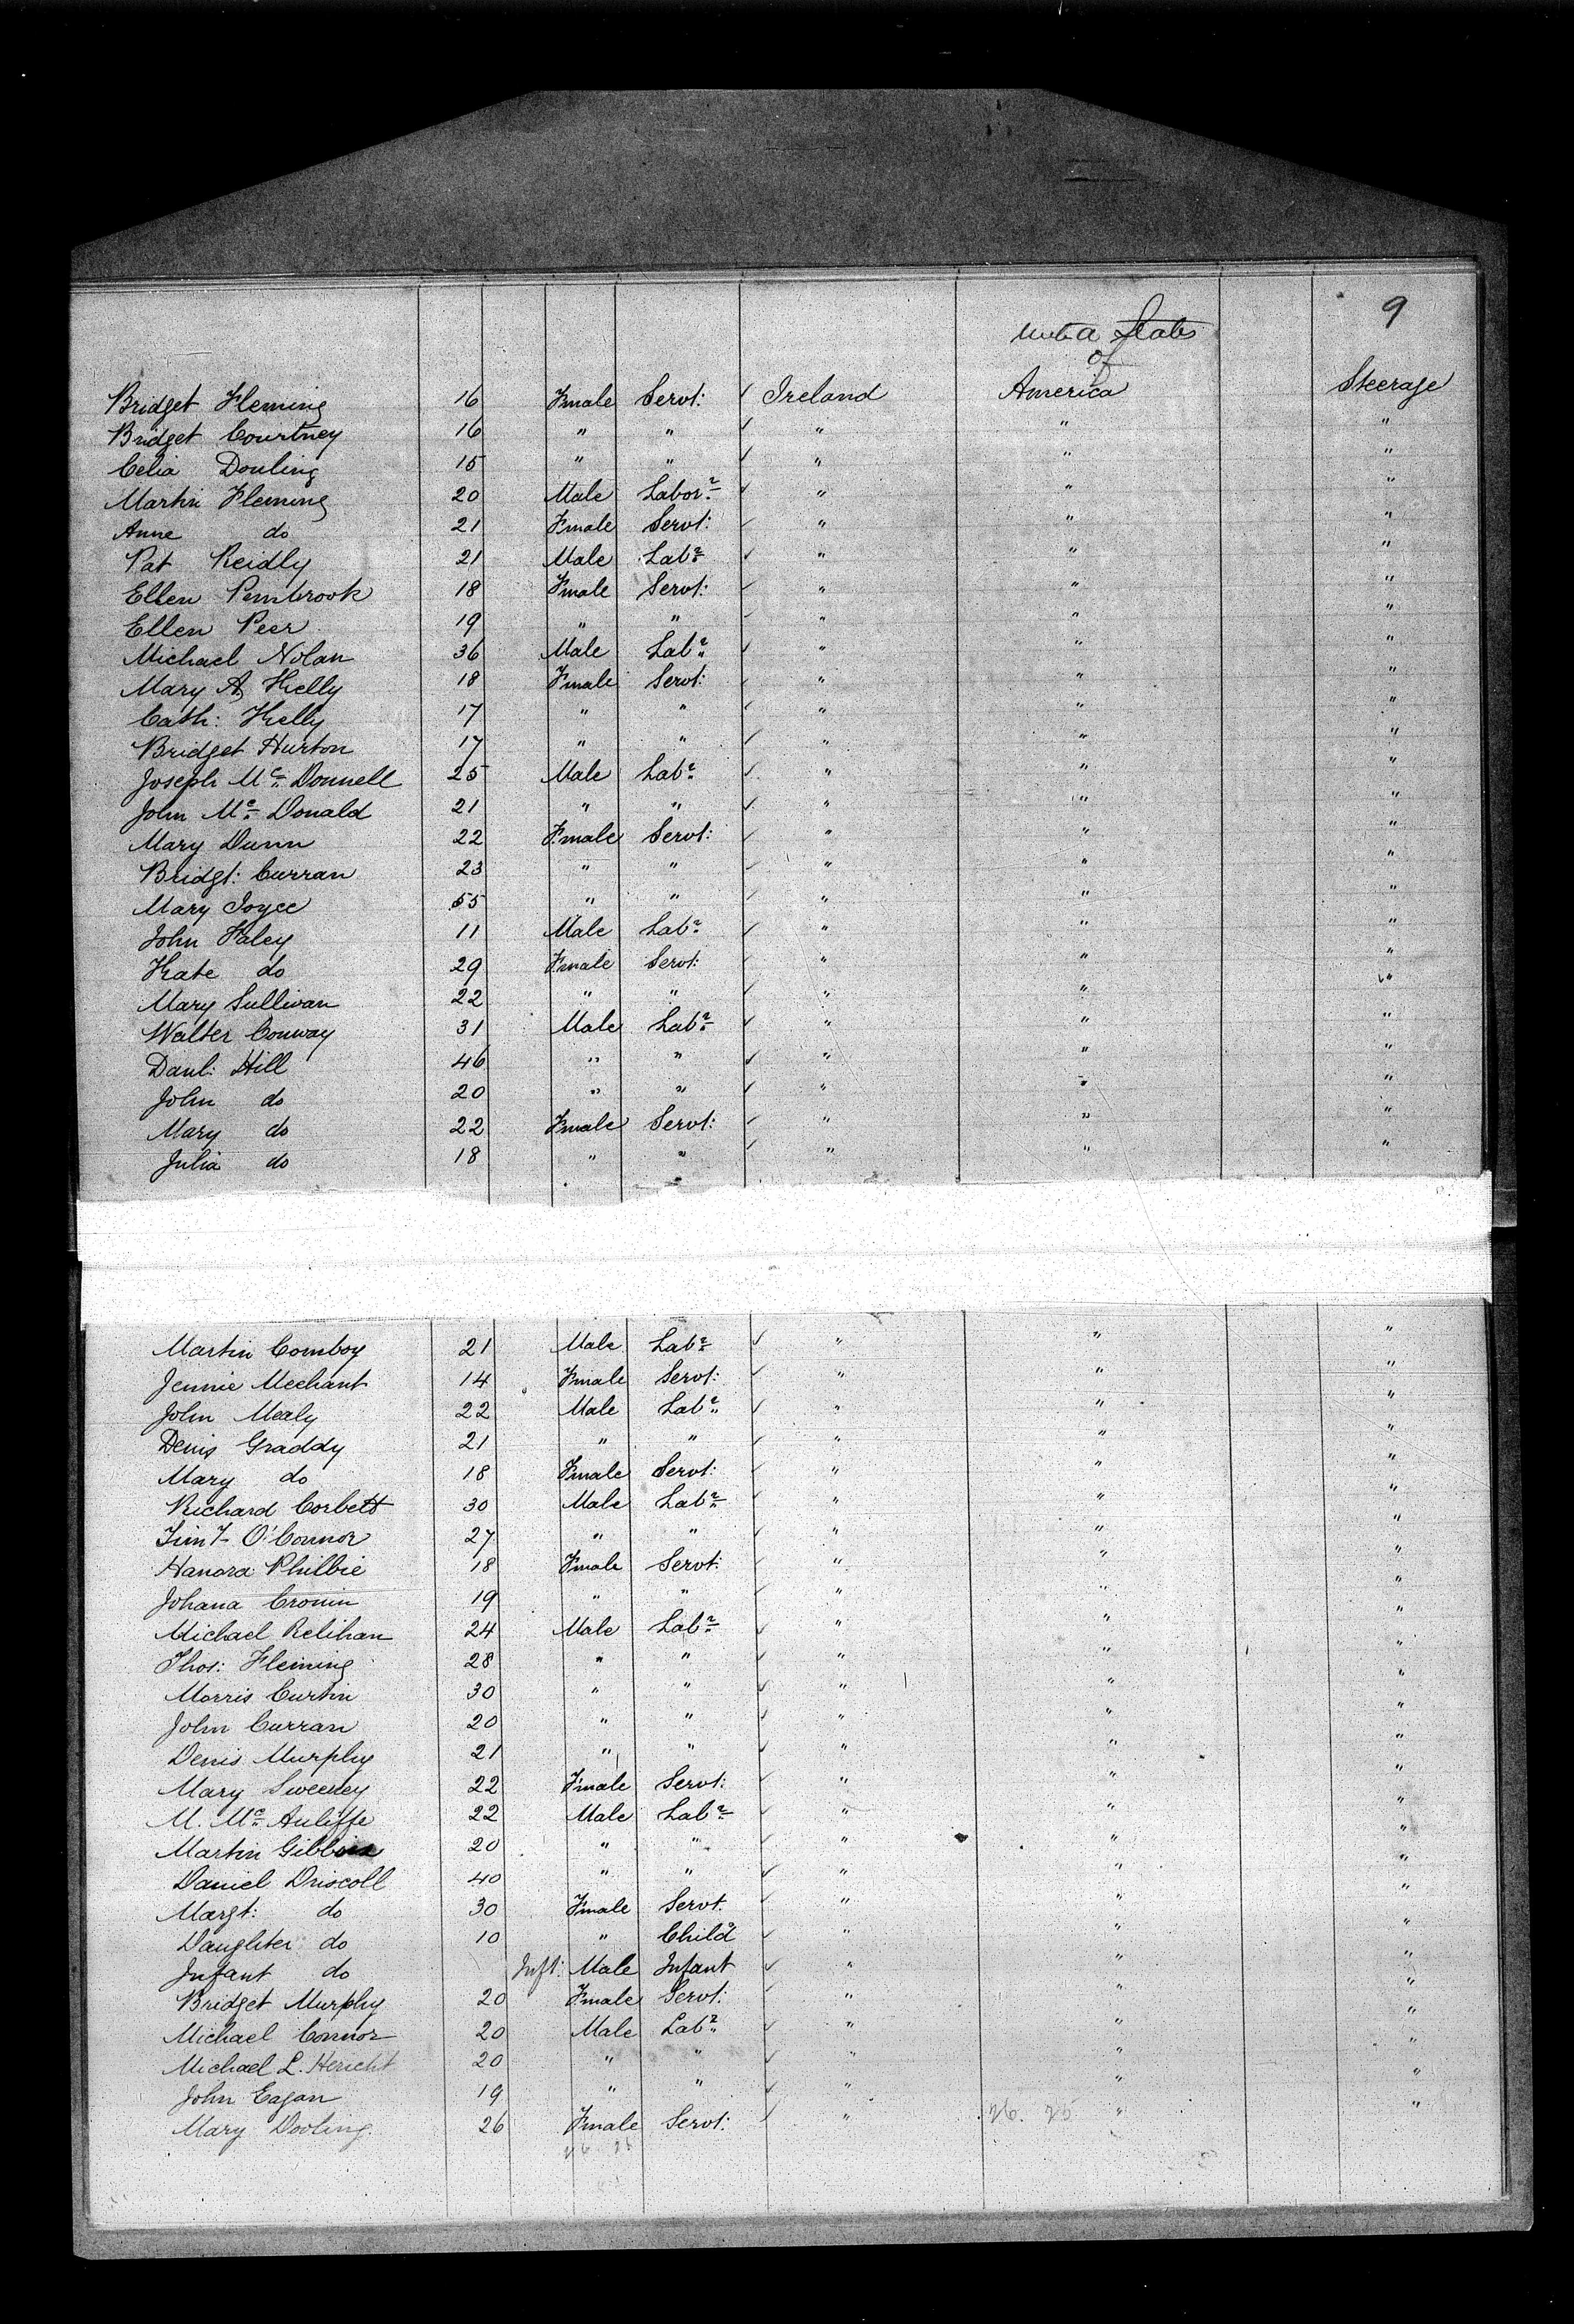 9
United States
of
Bridget Fleming 16 Female Servt: ✓ Ireland America Steerage
Bridget Courtney 16 " " ✓ " " "
Celia Douling 15 " " ✓ " " "
Martin Fleming 20 Male Labor ✓ " " "
Anne do 21 Female Servt: ✓ " " "
Pat Reidly 21 Male Labr ✓ " " "
Ellen Pembrook 18 Female Servt: ✓ " " "
Ellen Peer 19 " " ✓ " " "
Michael Nolan 36 Male Labr ✓ " " "
Mary A Kelly 18 Female Servt: ✓ " " "
Cath: Kelly 17 " " ✓ " " "
Bridget Hurton 17 " " ✓ " " "
Joseph Mc Donnell 25 Male Labr ✓ " " "
John Mc Donald 21 " " ✓ " " "
Mary Dunn 22 Female Servt: ✓ " " "
Bridgt: Curran 23 " " ✓ " " "
Mary Joyce 55 " " ✓ " " "
John Haley 11 Male Labr ✓ " " "
Kate do 29 Female Servt: ✓ " " "
Mary Sullivan 22 " " ✓ " " "
Walter Conway 31 Male Labr ✓ " " "
Danl: Hill 46 " " ✓ " " "
John do 20 " " ✓ " " "
Mary do 22 Female Servt: ✓ " " "
Julia do 18 " " ✓ " " "
Martin Comboy 21 Male Labr ✓ " " "
Jennie Mechant 14 Female Servt: ✓ " " "
John Mealy 22 Male Labr ✓ " " "
Denis Graddy 21 " " ✓ " " "
Mary do 18 Female Servt: ✓ " " "
Richard Corbett 30 Male Labr ✓ " " "
O'Connor 27 " " ✓ " " "
Hanora Philbie 18 Female Servt: ✓ " " "
Johana Cronin 19 " " ✓ " " "
Michael Relihan 24 Male Labr ✓ " " "
Thos: Fleming 28 " " ✓ " " "
Morris Curtin 30 " " ✓ " " "
John Curran 20 " " ✓ " " "
Denis Murphy 21 " " ✓ " " "
Mary Sweeney 22 Female Servt: ✓ " " "
M. Mc Auliffe 22 Male Labr ✓ " " "
Martin Gibbons 20 " " ✓ " " "
Daniel Driscoll 40 " " ✓ " " "
Margt: do 30 Female Servt. ✓ " " "
Daughter do 10 " Child ✓ " " "
Infant do Inft: Male Infant ✓ " " "
Bridget Murphy 20 Female Servt: ✓ " " "
Michael Connor 20 Male Labr ✓ " " "
Michael L. Hericht 20 " " ✓ " " "
John Eagan 19 " " ✓ " " "
Mary Dooling. 26 Female Servt: ✓ " 26. 25 " "
26 25